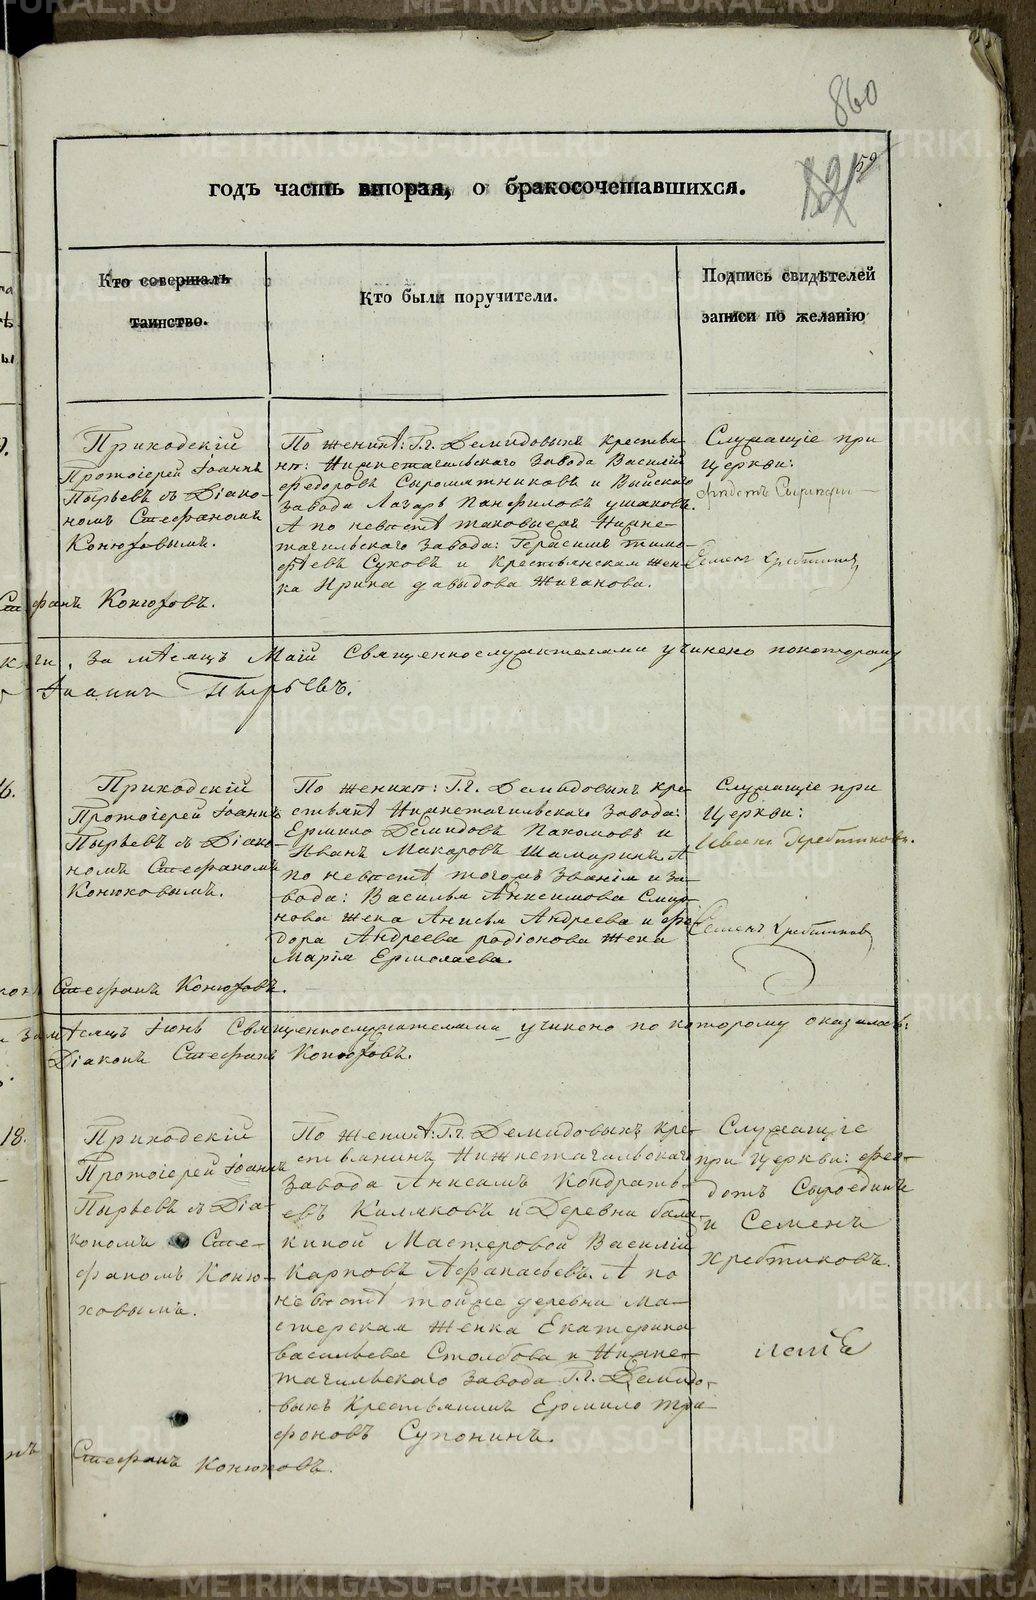 860
59
годъ часть вторая, о бракосочетавшихся.
Кто совершалъ
таинство.
Кто были поручители.
Подпись свидѣтелей
записи по желанію
Приходскій
Протоіерей Іоаннъ
Пырьевъ съ Діако-
номъ Стефаномъ
Конюховымъ.
По женихѣ: Г.г. Демидовыхъ крестья-
не: Нижнетагильскаго завода Василій
Федоровъ Сыромятниковъ и Выйскаго
завода Лазарь Панфиловъ Ушаковъ.
А по невѣстѣ таковыеже Нижне-
тагильскаго завода: Герасимъ Тимо-
фѣевъ Суховъ и крестьянская жен-
ка Ирина Давыдова Жиганова.
Служащіе при
церкви:
Семенъ Хребтиковъ
Стефанъ Конюховъ.
за мѣсяцъ Маій Священнослужителями учинено покоторому
Іоаннъ Пырьевъ.
Приходскій
Протоіерей Іоаннъ
Пырьевъ съ Діако-
номъ Стефаномъ
Конюховымъ.
По женихѣ: Г.г. Демидовыхъ кре-
стьяне Нижнетагильскаго завода:
Ермило Демидовъ Пахомовъ и
Иванъ Макаровъ Шамаринъ А
по невѣстѣ тогожъ званія и за-
вода: Василья Анисимова Смир-
нова жена Анисья Андреева и Фе-
дора Андреева Родіонова жена
Марія Ермолаева.
Служащіе при
Церкви:
Иванъ Хребтиковъ.
Семенъ Хребтиковъ
Стефанъ Конюховъ.
за мѣсяцъ Іюнь Священнослужителями учинено по которому оказалось:
Діаконъ Стефанъ Конюховъ.
18.
Приходскій
Протоіерей Іоаннъ
Пырьевъ съ Діа-
кономъ Сте-
фаномъ Коню-
ховымъ.
По женихѣ: Г.г. Демидовыхъ кре-
стьянинъ Нижнетагильскаго
завода Анисимъ Кондрать-
евъ Киляковъ и Деревни Бала-
киной Мастеровой Василій
Карповъ Афанасьевъ. А по
невѣстѣ тойже деревни Ма-
стерская женка Екатерина
Васильева Столбова и Нижне-
тагильскаго завода Г.г. Демидо-
выхъ крестьянинъ Ермило Три-
фоновъ Супонинъ.
Служащіе
при церкви: Фе-
дотъ Сыроединъ
и Семенъ
Хребтиковъ.
Стефанъ Конюховъ.